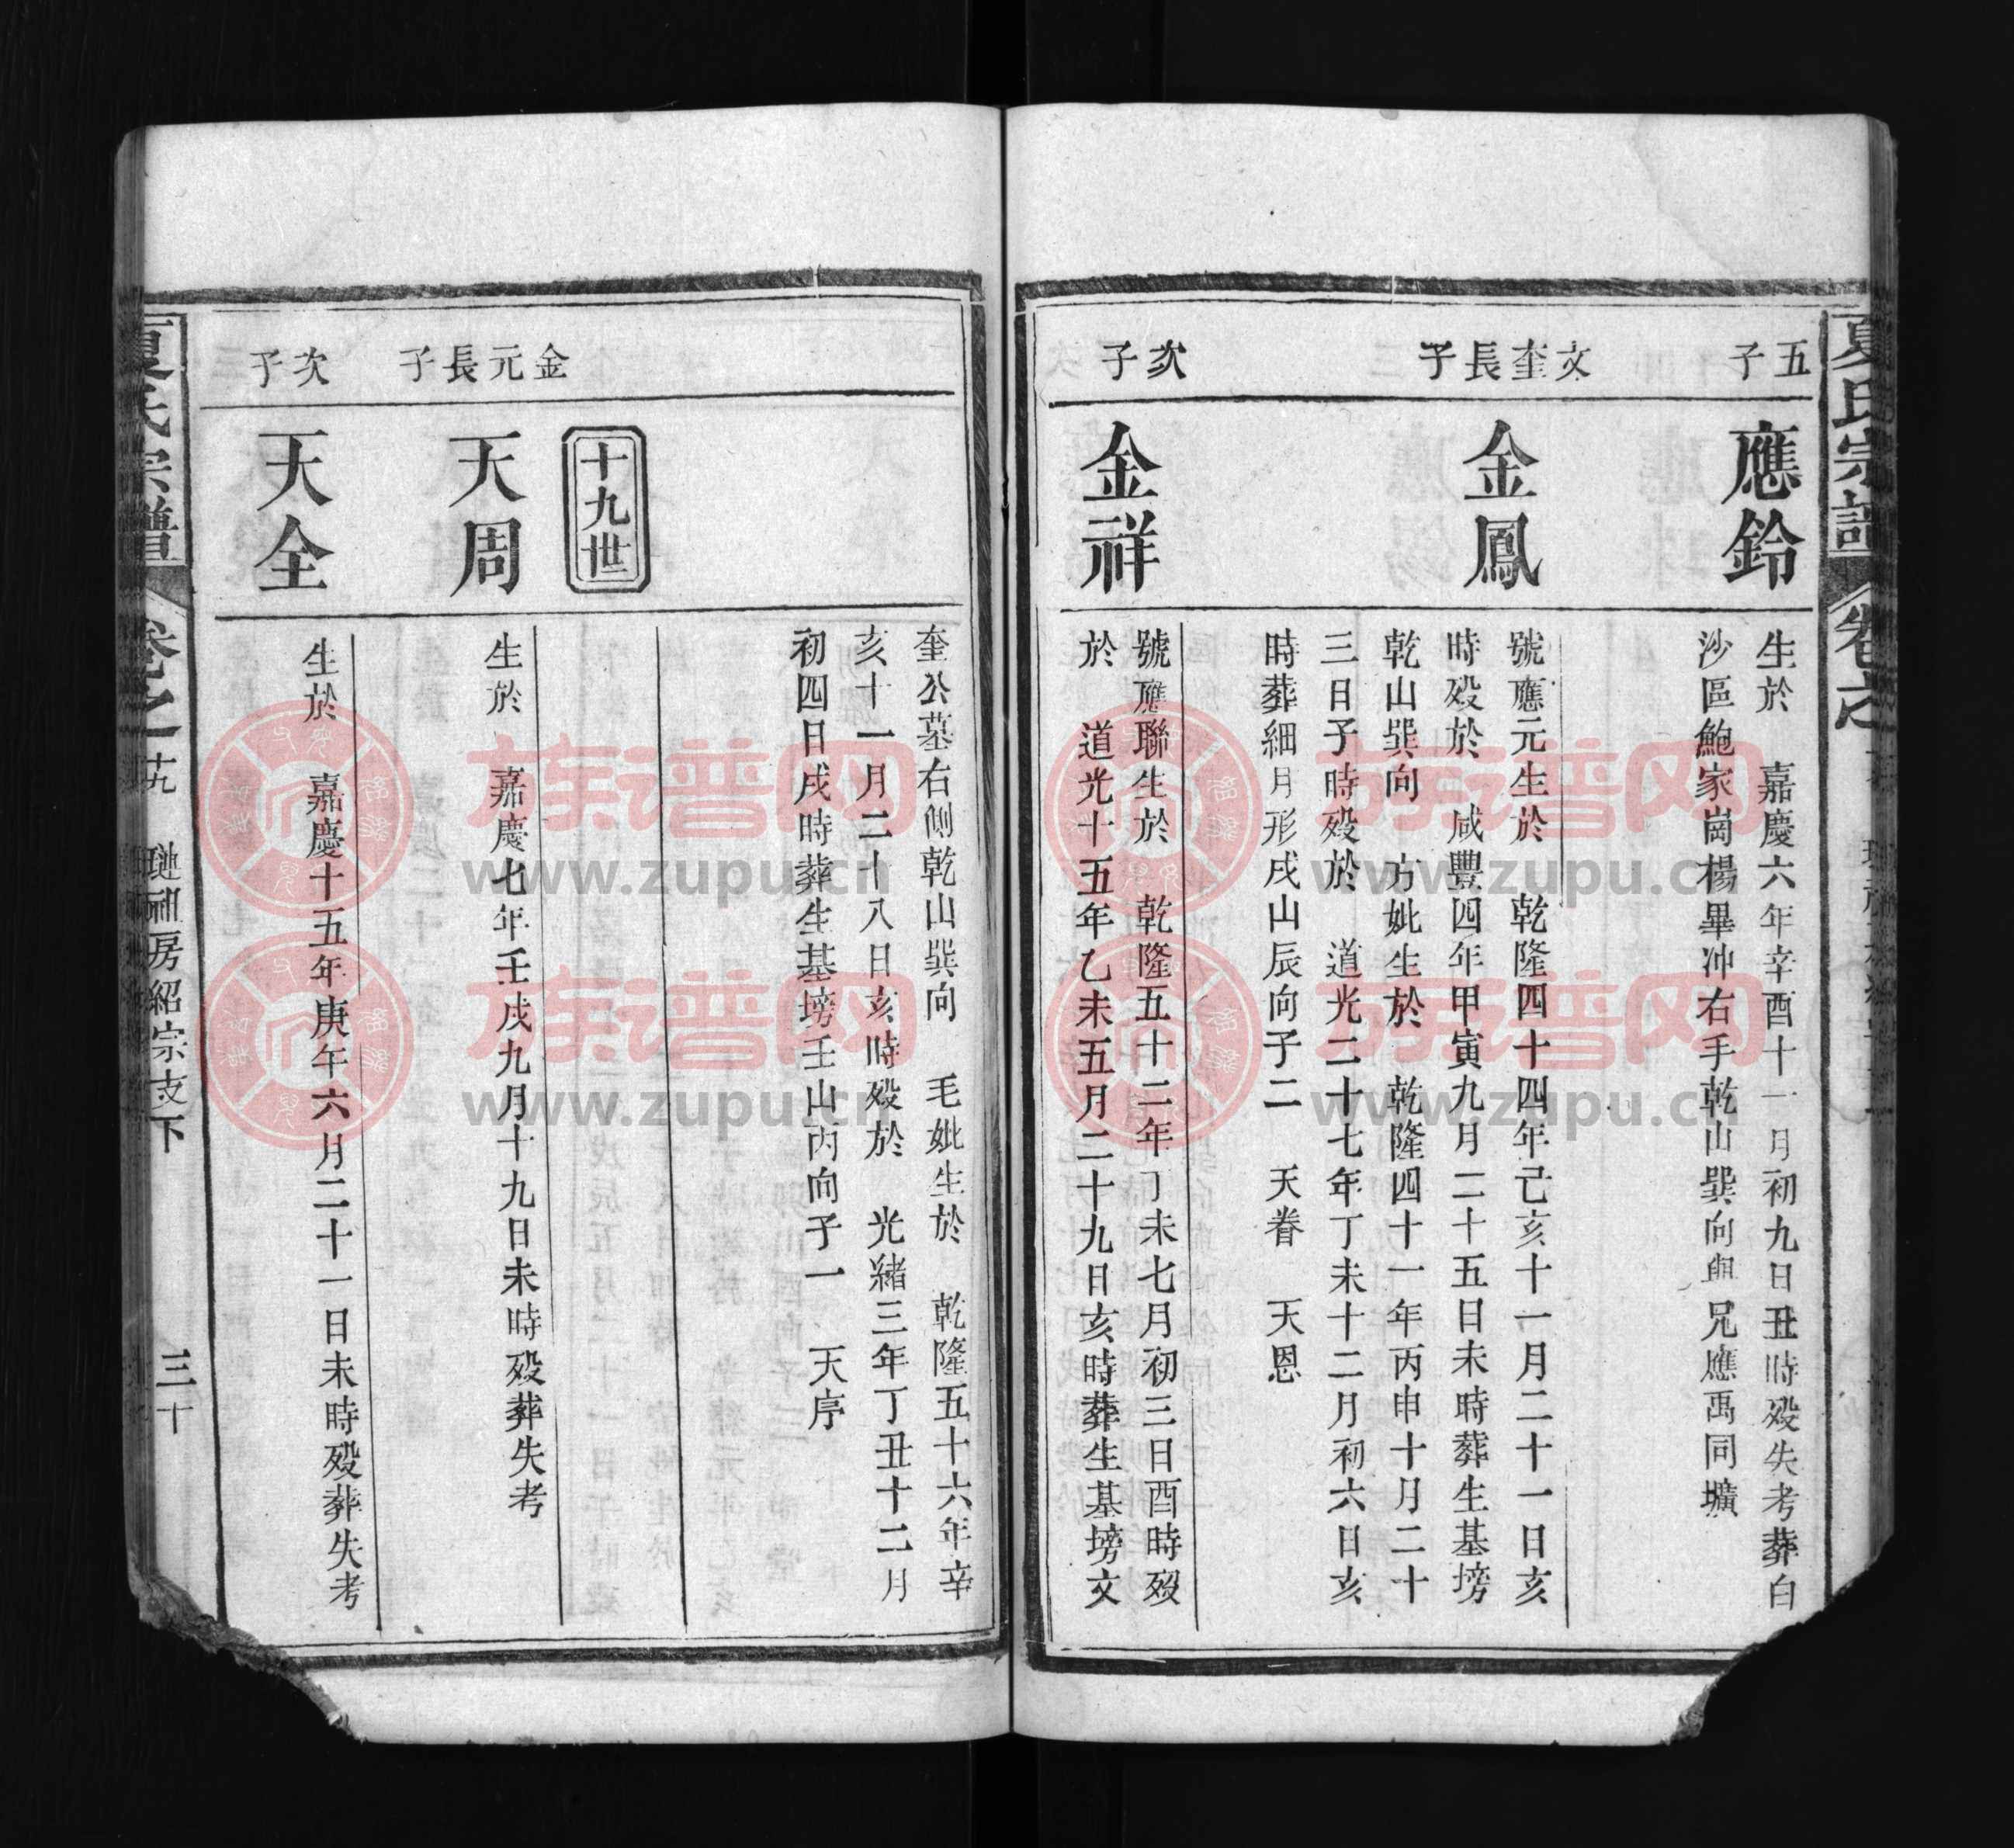 夏氏宗譜
卷之
五子
應鈴
生於 嘉慶六年辛酉十一月初九日丑時歿失考葬白
沙區鮑家崗楊畢冲右手乾山巽向與兄應禹同壙
文奎長子
金鳳
號應元生於 乾隆四十四年己亥十一月二十一日亥
時歿於 咸豐四年甲寅九月二十五日未時葬生基塝
乾山巽向 方妣生於 乾隆四十一年丙申十月二十
三日子時歿於 道光二十七年丁未十二月初六日亥
時葬細月形戌山辰向子二 天眷 天恩
次子
金祥
號應聯生於 乾隆五十二年丁未七月初三日酉時歿
於 道光十五年乙未五月二十九日亥時葬生基塝文
奎公墓右側乾山巽向 毛妣生於 乾隆五十六年辛
亥十一月二十八日亥時歿於 光緒三年丁丑十二月
初四日戌時葬生基塝壬山丙向子一 天序
十九世
金元長子
天周
生於 嘉慶七年壬戌九月十九日未時歿葬失考
次子
天全
生於 嘉慶十五年庚午六月二十一日未時歿葬失考
夏氏宗譜
卷之十九 璉祖房紹宗支下
三十
族谱网
www.zupu.cn
族谱网
www.zupu.cn
族谱网
www.zupu.cn
族谱网
www.zupu.cn